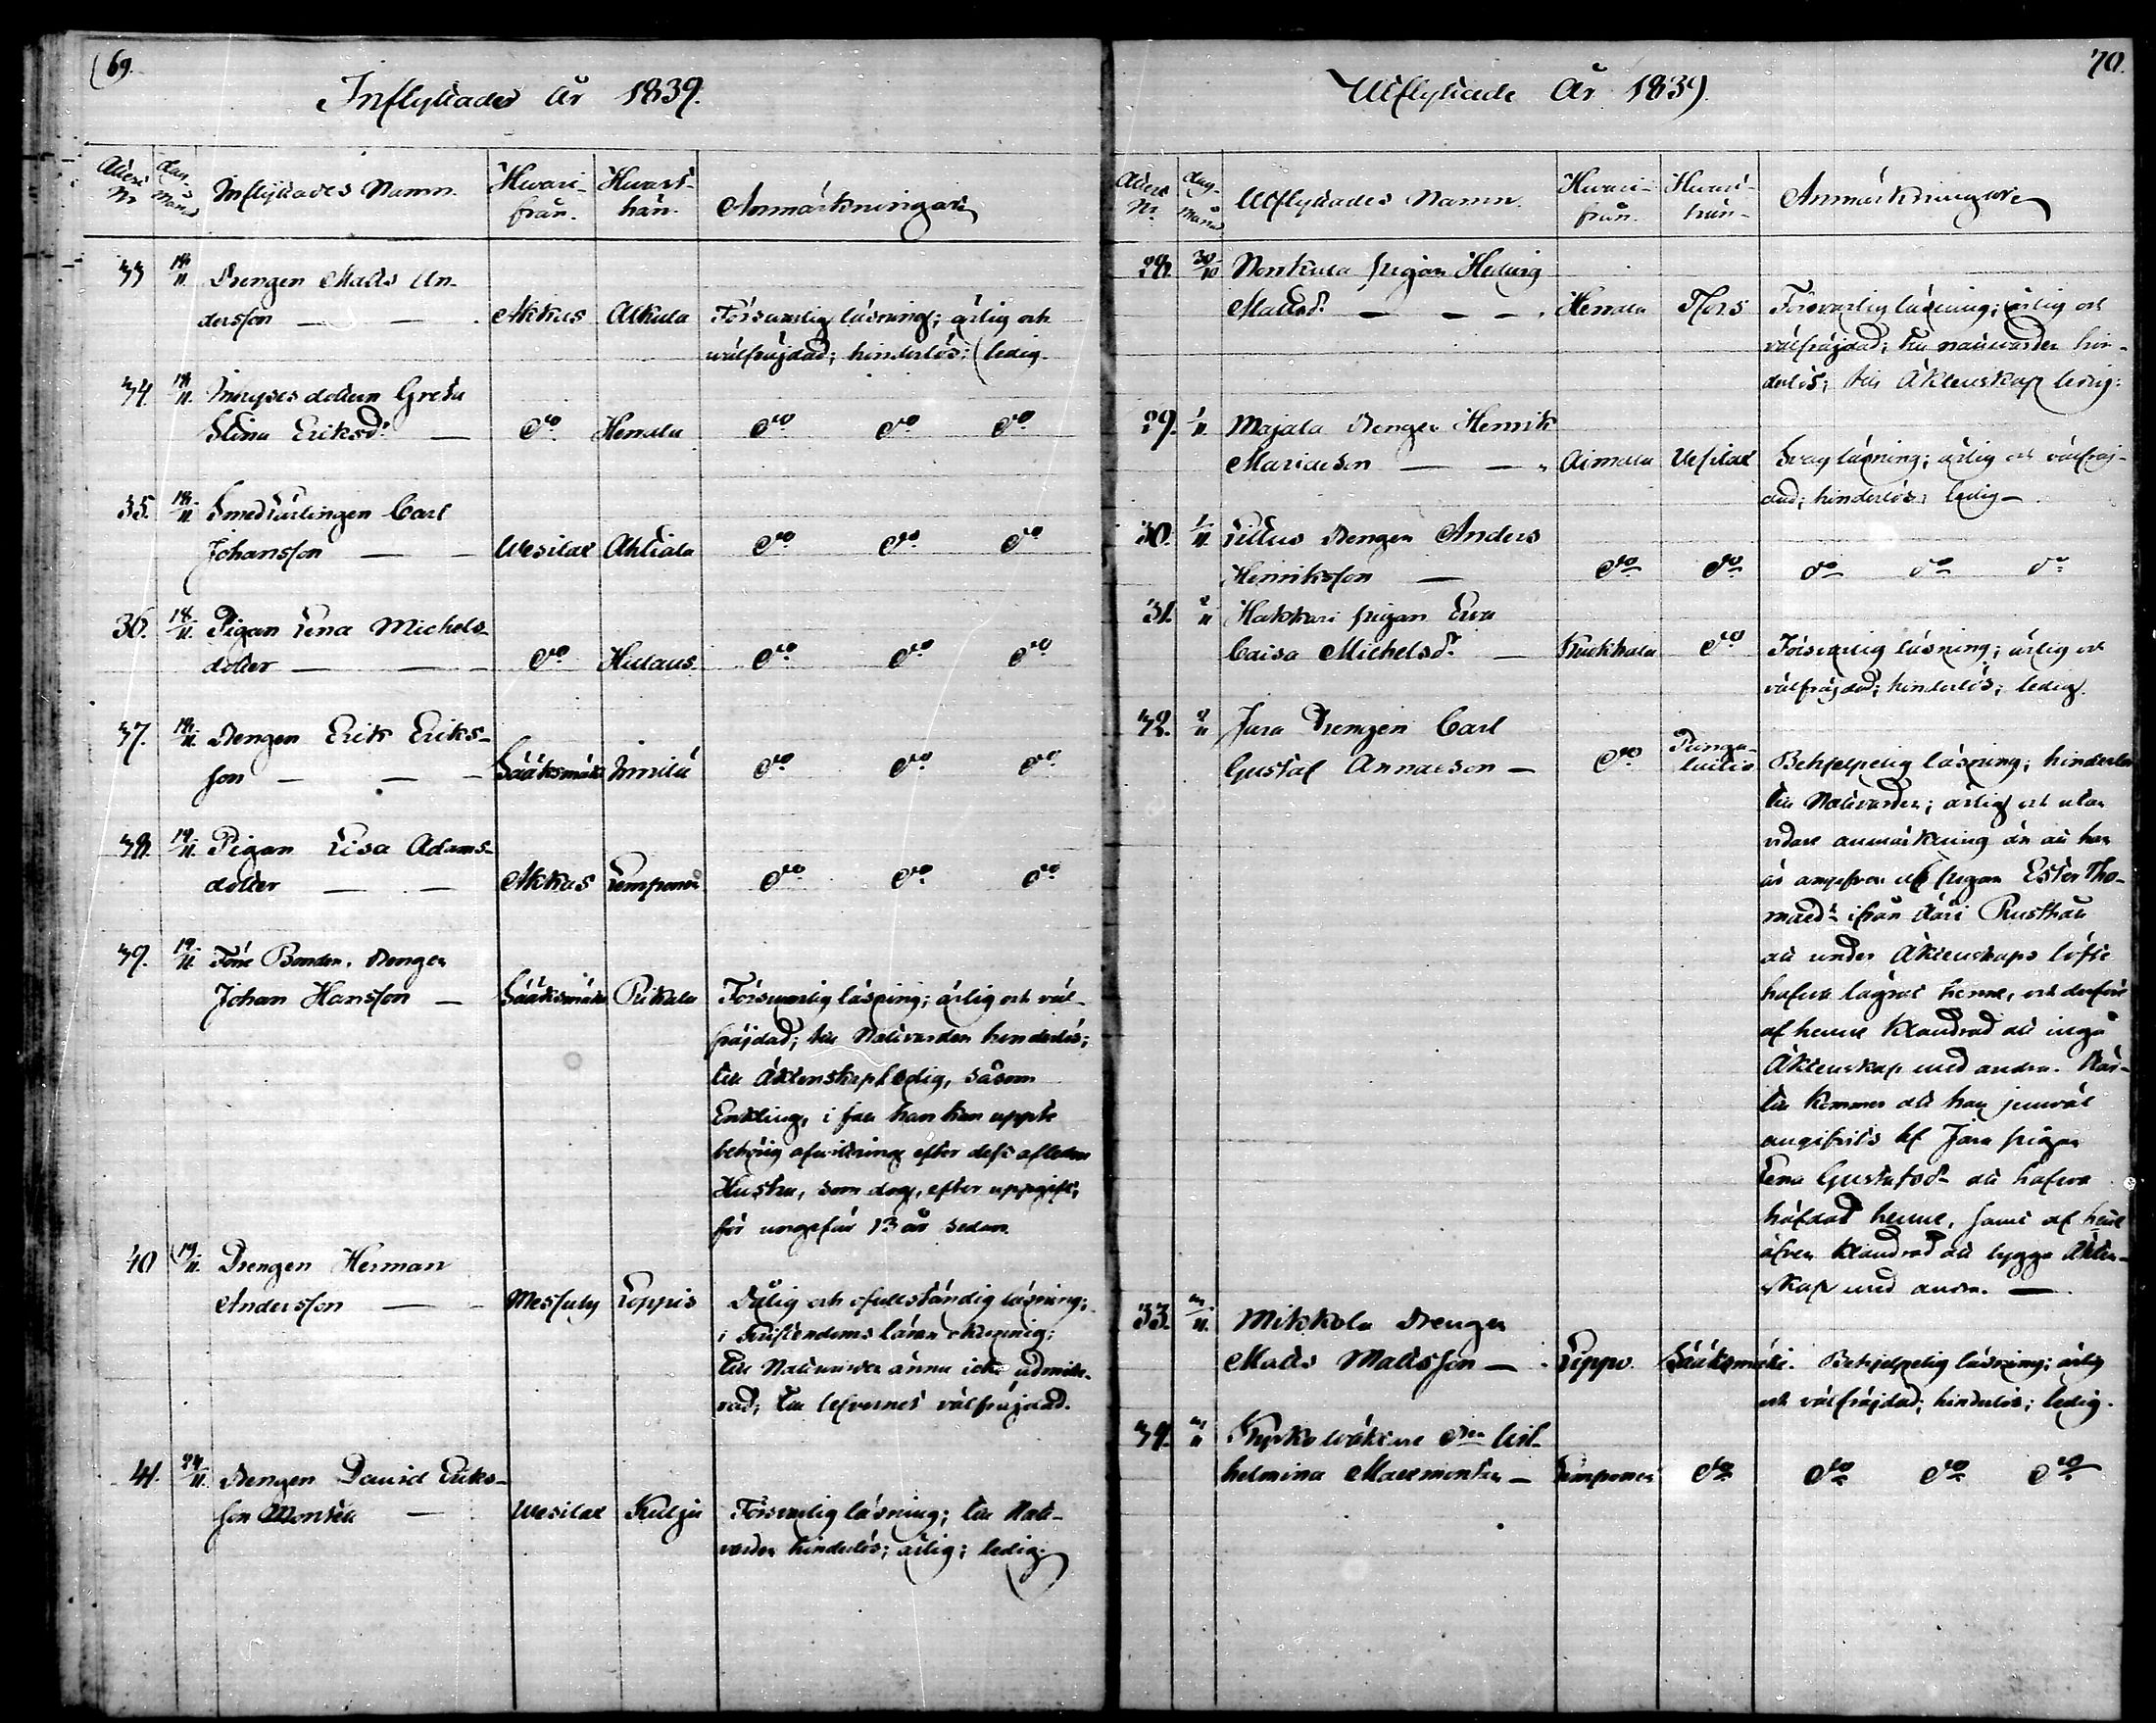 69.
Inflyttades År 1839.
Attest Nr
Dag. o. Månad
Inflyttades Namn.
Hvari-
från.
Hvart-
hän.
Anmärkningar
33 18/11 Drengen Matts An-
dersson — — Akkas Alkula Försvarlig läsning; ärlig och
wälfräjdad; hinderlös; ledig.
34. 18/11. Inhyses dottern Greta
Stina Eriksdr — do Hemala do do do
35. 18/11. Smedlärlingen Carl
Johansson — Wesilax Ahtiala do do do
36. 18/11. Pigan Lena Michels-
dotter — — do Hulaus do do do
37. 18/11. Drengen Erik Eriks-
son — — Sääksmäki do do do
38. 19/11. Pigan Lisa Adams-
dotter — — Akkas Lemponen do do do
39. 19/11. Förre Bonden, drengen
Johan Hansson — Sääksmäki Rikala Försvarlig läsning; ärlig och väl-
fräjdad; till Nattvarden hinderlös;
till Äktenskap ledig, såsom
Enkling, i fall han kan uppte
behörig afwittring efter dess aflidna
Hustru, som dog, efter uppgift,
för ungefär 13 år sedan.
40 19/11. Drengen Herman
Andersson — Messuby Loppis Dålig och ofullständig läsning;
i Kristendoms läran okunnig;
till Nattvarden ännu icke admitte-
rad; till lefvernet välfräjdad.
41. 24/11. Drengen David Eriks-
son — Wesilax Kulju Försvarlig läsning; till Natt-
varden hinderlös; ärlig; ledig
70.
Utflyttade År 1839
Attest Nr.
Dag. Månad
Utflyttades Namn.
Hvari-
från.
Hvart-
hän.
Anmärkningar
28. 30/10 pigan Hedvig
Mattsdr — — — Hemala Försvarlig läsning; ärlig och
välfräjdad; till nattvarden hin-
derlös; till Äktenskap ledig.
29. 1/11. Majala drengen Henrik
Mariaeson — — Aimala Vesilax Svag läsning; ärlig och välfräj-
dad; hinderlös; ledig —
30. 1/11. drengen Anders
Henriksson — do do do do do
31. 2/11 Hakkari pigan Eva
Caisa Michelsdr — do Försvarlig läsning; ärlig och
välfräjdad; hinderlös; ledig.
32. 2/11 Jara Drengen Carl
Gustaf Annaeson — do Punga-
laitio Behjelpelig läsning; hinderlös
till Nattvarden; ärlig och utan
vidare anmärkning än att han
är angifven af pigan Ester Tho-
maedr ifrån Rusthåll
att under Äktenskaps löfte
hafva lägrat henne, och derföre
af henne klandrad att ingå
Äktenskap med andra. Här-
till kommer att han jemväl
angifvits af Jara pigan
Lena Gustafsdr att hafva
häfdat henne, samt af henne
äfven klandrad att bygga Äkten-
skap med andra. —
33. 11. Mikkola Drengen
Matts Mattsson — Sääksmäki. Behjelpelig läsning; ärlig
och välfräjdad; hinderlös; ledig.
34. 11 Kyrkowäktare Wil-
helmina — Lemponen do do do do